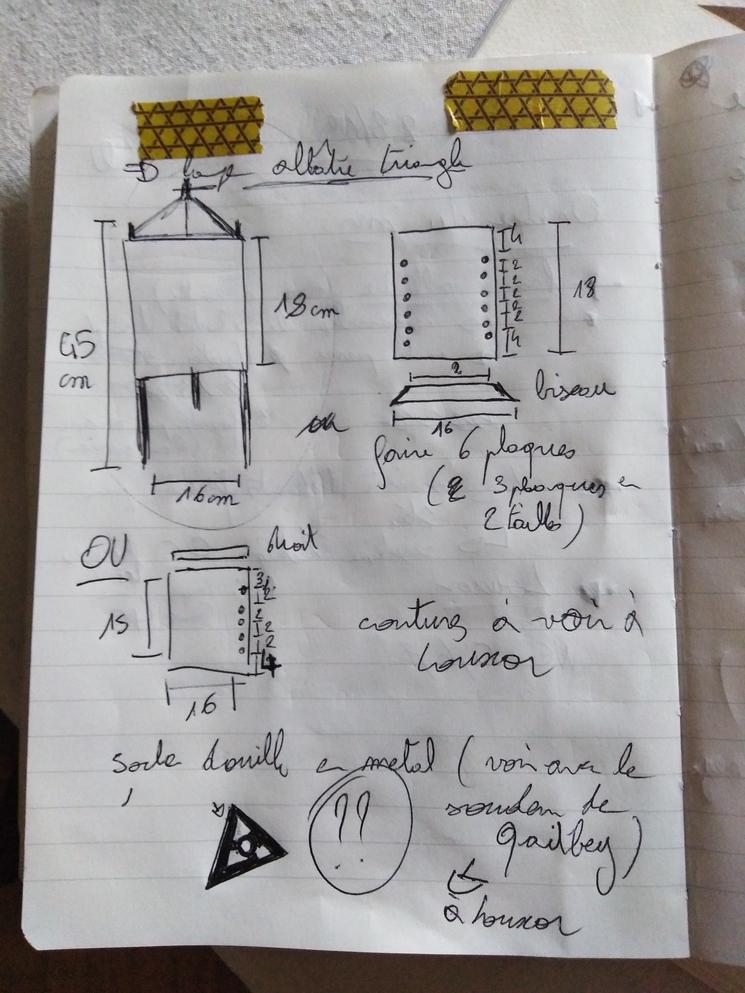 =D lamp albatre triangle
18 cm
45
cm
16 cm
4
2
2
2
2
4
18
2
16
biseau
ou
faire 6 plaques
( 3 plaques en
2 tailles )
OU
droit
15
3
2
2
2
2
4
16
coutures à voir à
Louxor
socle douille en metal ( voir avec le
soudeur de
??
à Louxor